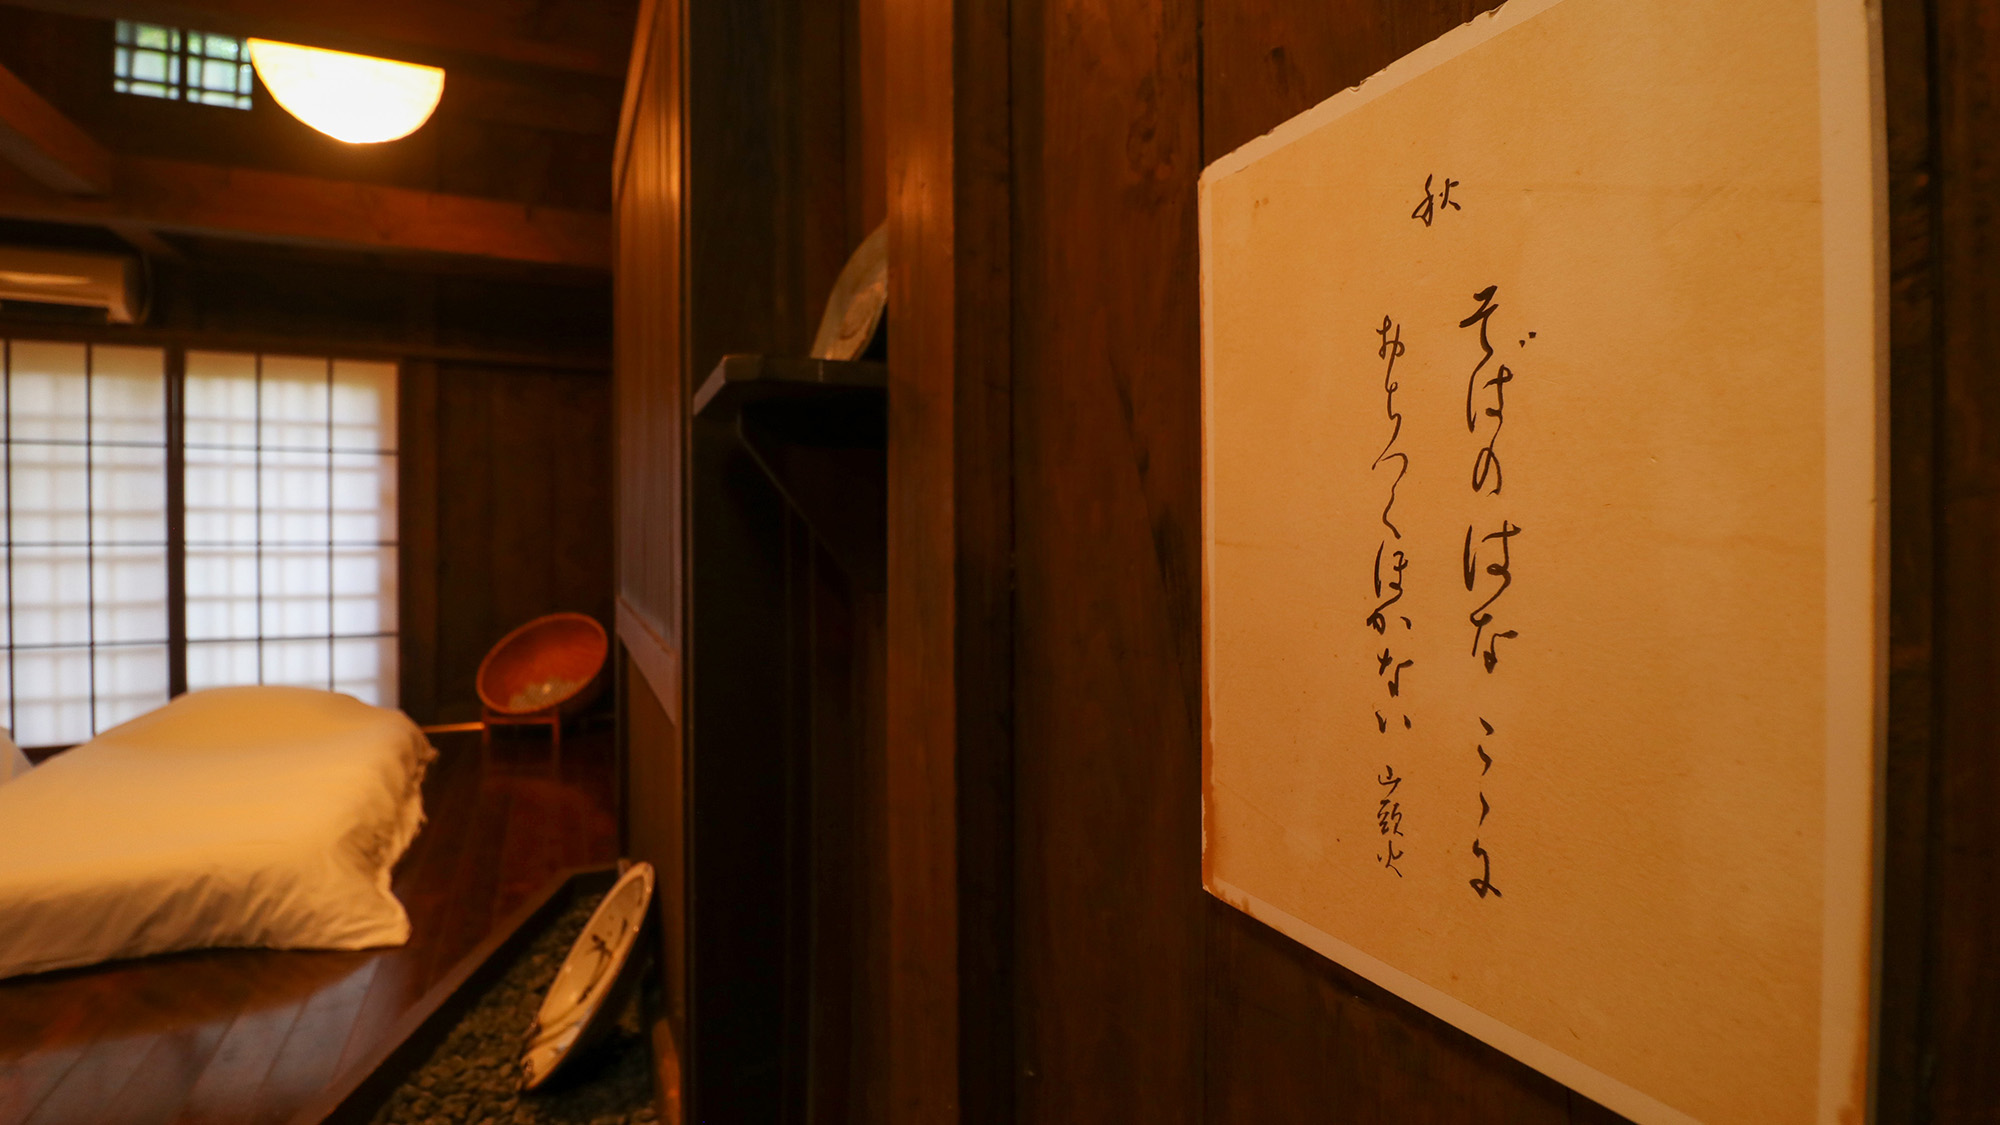 秋
そばのはな こゝに
おちつくほかない 山頭火